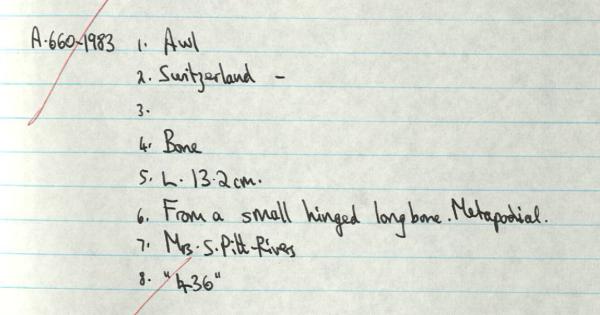 A.660-1983 1. Awl
2. Switzerland -
3.
4. Bone
5. L. 13.2cm.
6. From a small hinged longbone. Metapodial.
7. Mrs. S. Pitt-Rivers
8. "436"